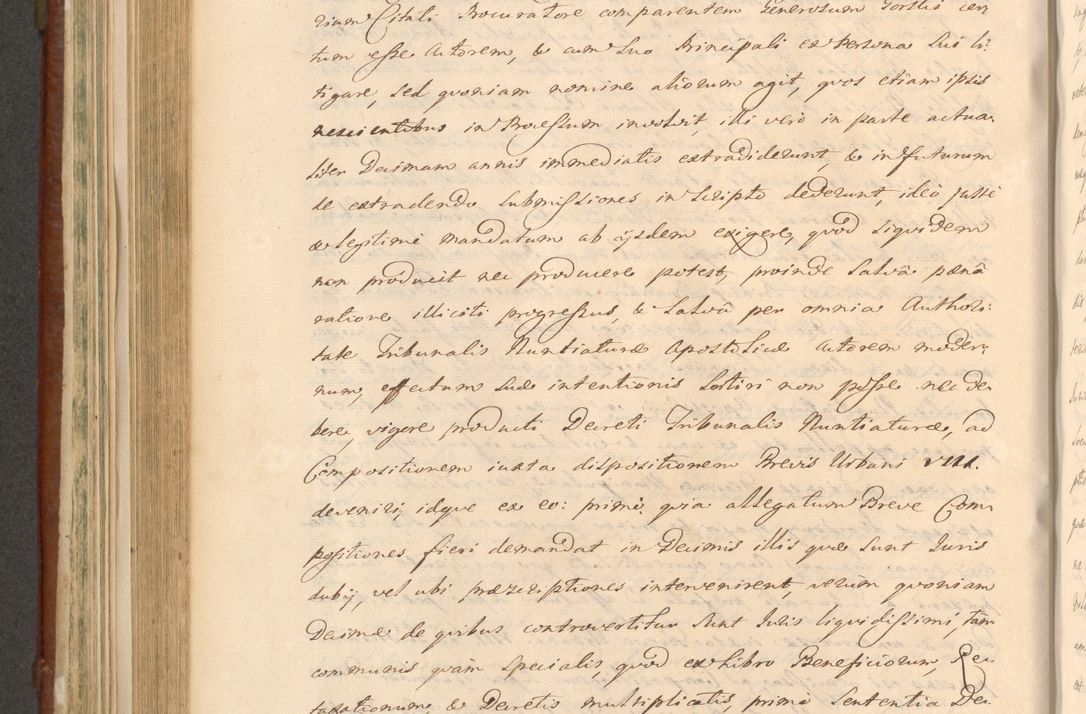 rium Citati Procuratore comparentem Generosum Gorski cer,
tum esse Actorem, & cum Suo Principali ex Persona Sui li:
tigare, Sed quoniam nomine aliorum agit, quos etiam ipsis
nescientibus in Processum involvit, illi verò in parte actua,
liter Decimam annis immediatis extradiderunt, & in futurum
de extradenda Submissiones in Scripto dederunt, ideò juste
& legitime mandatum ab ijsdem exigere, quod Siquidem
non producit nec producere potest, proinde Salvâ pænâ
ratione illiciti progressus, & Salvâ per omnia Authori:
tate Tribunalis Nuntiaturæ Apostolicæ Actorem moder,
num, effectum Suæ intentionis Sortiri non posse nec de
bere, vigore producti Decreti Tribunalis Nuntiaturæ, ad
Compositionem iuxta dispositionem Brevis Urbani VIII.
deveniri, idque ex eo: primò, quia allegatum Breve Com,
positiones fieri demandat in Decimis illis quæ Sunt Juris
dubij, vel ubi præscriptiones intervenirent, verùm quoniam
Decimæ de quibus controvertitur Sunt Juris liquidissimi, tàm
communis quàm Specialis, quod ex Libro Beneficiorum,
taxationum, & Decretis multiplicatis, primò Sententia De: